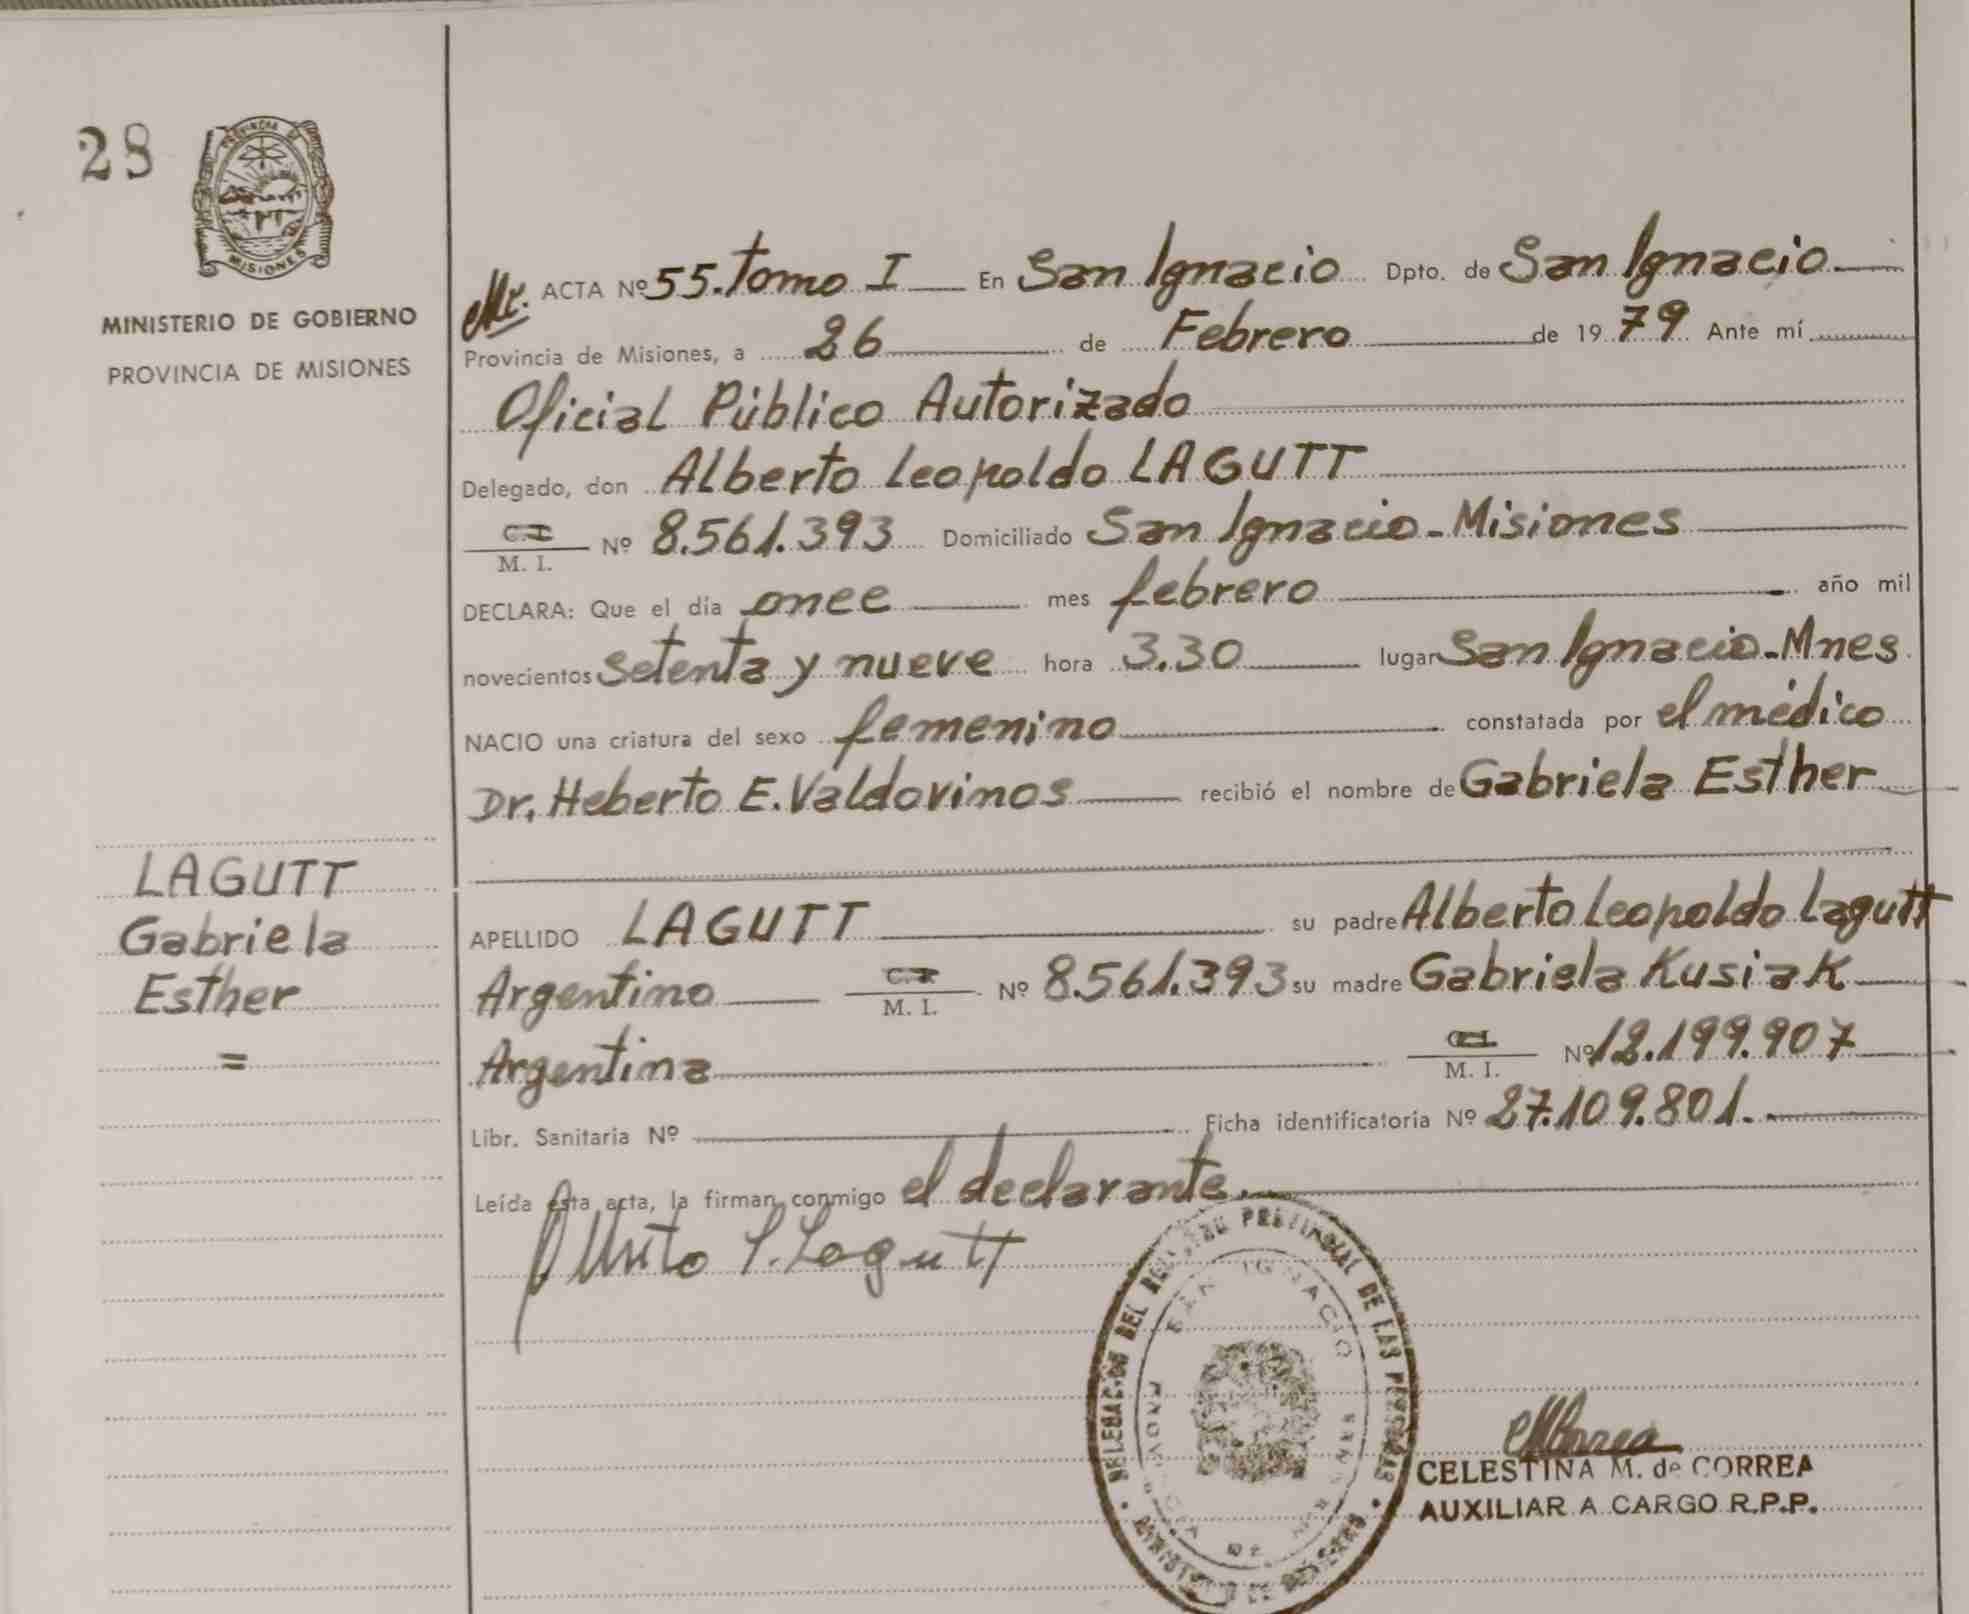 28
PROVINCIA DE
MISIONES
MINISTERIO DE GOBIERNO
PROVINCIA DE MISIONES
ACTA Nº 55. Tomo I En San Ignacio Dpto. de San Ignacio
Provincia de Misiones, a 26 de Febrero de 1979 Ante mí
Oficial Público Autorizado
Delegado, don Alberto Leopoldo LAGUTT
C.I.
M. I. Nº 8.561.393 Domiciliado San Ignacio-Misiones
DECLARA: Que el día once mes febrero año mil
novecientos setenta y nueve hora 3.30 lugar San Ignacio-Mnes
NACIO una criatura del sexo femenino constatada por el médico
Dr. Heberto E. Valdovinos recibió el nombre de Gabriela Esther
LAGUTT
Gabriela
Esther
=
APELLIDO LAGUTT su padre Alberto Leopoldo Lagutt
Argentino C.I. M. I. Nº 8.561.393 su madre Gabriela Kusiak
Argentina C.I. M. I. Nº 12.199.907
Libr. Sanitaria Nº Ficha identificatoria Nº 27.109.801.
Leída esta acta, la firman conmigo el declarante.
Alberto L. Lagutt
DELEGACION DEL REGISTRO PROVINCIAL DE LAS PERSONAS
MINISTERIO DE GOBIERNO
SAN IGNACIO
PROVINCIA DE MISIONES
CMCorrea
CELESTINA M. de CORREA
AUXILIAR A CARGO R.P.P.